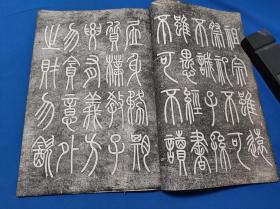 祖宗雖遠
祭祀不可
不誠子孫
雖愚經書
不可不讀
居身務期
質樸教子
要有義方
勿貪意外
之財勿飲